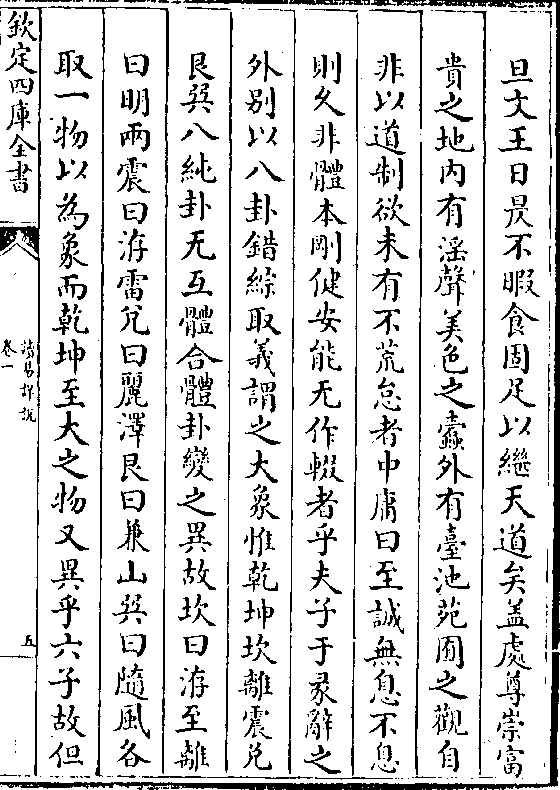 旦文王日昃不暇食固足以繼天道矣盖處尊崇富
貴之地内有滛聲美色之蠧外有臺池苑囿之觀自
非以道制欲未有不荒怠者中庸曰至誠無息不息
則久非體本剛健安能无作輟者乎夫子于彖辭之
外别以八卦錯綜取義謂之大象惟乾坤坎離震兌
艮巽八純卦无互體合體卦變之異故坎曰洊至離
曰明兩震曰洊雷兌曰麗澤艮曰兼山巽曰隨風各
取一物以為象而乾坤至大之物又異乎六子故但
欽定四庫全書
讀易詳說
卷一
五